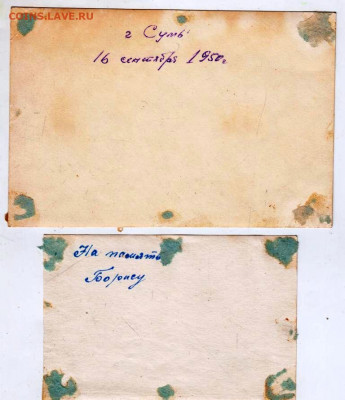 COINS.LAVE.RU
г Сумы
16 сентября 1950г.
На память
Борису